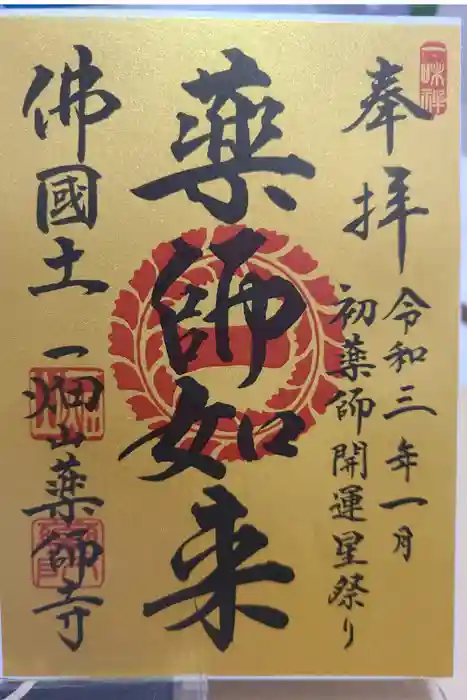 一味禅
奉拝
令和三年一月
初薬師開運星祭り
薬師如来
佛國土
一畑山薬師寺